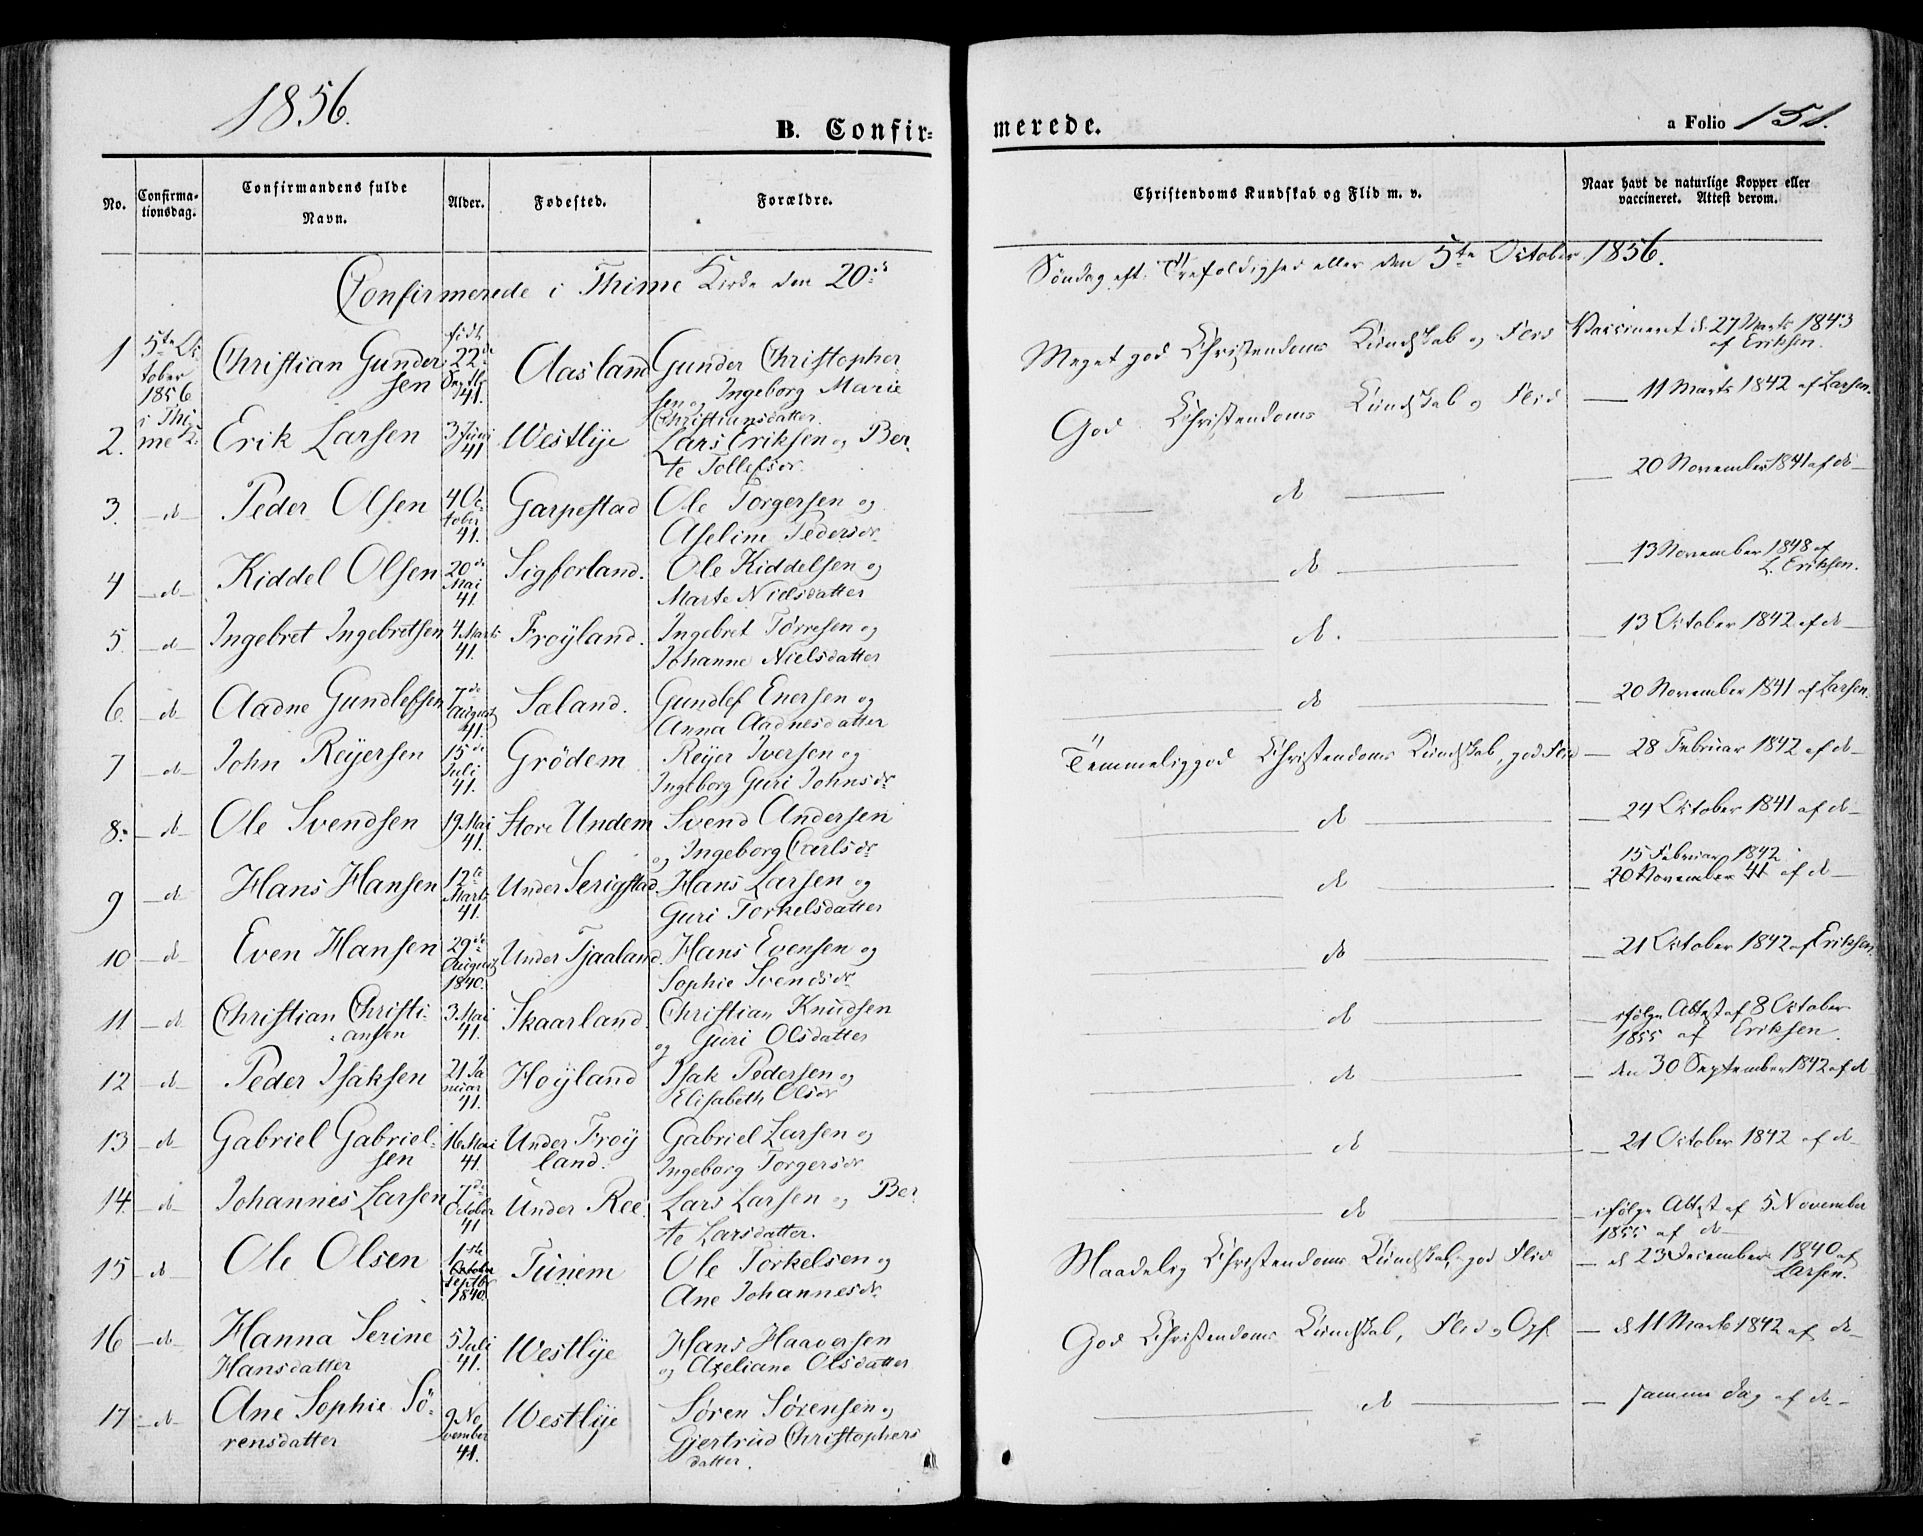 1856.
B. Confir-
merede.
a Folio 151.
No.
Confirma-
tionsdag.
Confirmandens fulde
Navn.
Alder.
Fødested.
Forældre.
Christendoms Kundskab og Flid m. v.
Naar havt de naturlige Kopper eller
vaccineret. Attest derom.
Confirmerede i Thime Kirke den 20de
Søndag eft. Trefoldighed eller den 5te October 1856.
1 5te Oc
tober
1856
i Thi
me K.
Christian Gunder
sen
født
22de
Septbr
41.
Aasland
Gunder Christopher
sen og Ingeborg Marie
Christiansdatter
Meget god Christendoms Kundskab og Flid
Vaccineret d. 27 Marts 1843
af Eriksen.
2. Erik Larsen
3 Juni
41
Westlye
Lars Eriksen og Ber
te Tollefsdr
God Christendoms Kundskab og Flid
11 Marts 1842 af Larsen.
3. do Peder Olsen
4 Oc
tober
41.
Garpestad
Ole Torgersen og
Aseline Pedersdr
do
20 November 1841 af do
4 do Kiddel Olsen
20de
Mai
41.
Sigforland.
Ole Kiddelsen og
Marte Nielsdatter
do
13 November 1848 af
L. Eriksen.
5 do Ingebret Ingebretsen
4 Marts
41.
Frøyland.
Ingebret Tørresen og
Johanne Nielsdatter
do.
13 October 1842 af do
6. do Aadne Gundlefsen
7de
August
41.
Sæland.
Gundlef Enersen og
Anna Aadnesdatter
do
20 November 1841 af Larsen.
7 do John Reyersen
15de
Juli
41.
Grödem
Reyer Iversen og
Ingeborg Guri Johnsdr
Temmelig god Christendoms Kundskab, god Flid
28 Februar 1842 af do
8. do Ole Svendsen
19 Mai
41.
Store Undem
Svend Andersen
og Ingeborg Carlsdr
do
24 October 1841 af do
9 do Hans Hansen
12te
Marts
41.
Under Serigstad.
Hans Larsen og
Guri Torkelsdatter
do
15 Februar 1842
20 November 41 af do
10 do Even Hansen
29de
August
1840.
Under Tjaaland.
Hans Evensen og
Sophie Svendsdr
do
21 October 1842 af Eriksen
11 do Christian Christi
ansen
3 Mai
41.
Skaarland.
Christian Knudsen
og Guri Olsdatter
do
ifølge Attest af 8 October
1855 af Eriksen.
12 do Peder Isaksen
21 Ja
nuar
41.
Høyland
Isak Pedersen og
Elisabeth Olsdr
do
den 30 September 1842 af do
13 do Gabriel Gabriel-
sen
16 Mai
41.
Under Frøy
land.
Gabriel Larsen og
Ingeborg Torgersdr
do
21 October 1842 af do
14. do Johannes Larsen
7de
October
41
Under Ree.
Lars Larsen og Ber
te Larsdatter.
do
ifølge Attest af 5 November
1855 af do
15 do Ole Olsen
1ste
October
Septbr
1840.
Tunem
Ole Torkelsen og
Ane Johannesdr
Maadelig Christendoms Kundskab, god Flid
d 23 December 1840 af
Larsen.
16 do Hanna Serine
Hansdatter
5 Juli
41.
Westlye
Hans Haaversen
og Axeliane Olsdatter
God Christendoms Kundskab, Flid og Opf.
d 11 Marts 1842 af do
17 do Ane Sophie Sö-
rensdatter
9 No
vember
41.
Westlye
Søren Sørensen og
Gjertrud Christophers
datter.
do
samme Dag af do